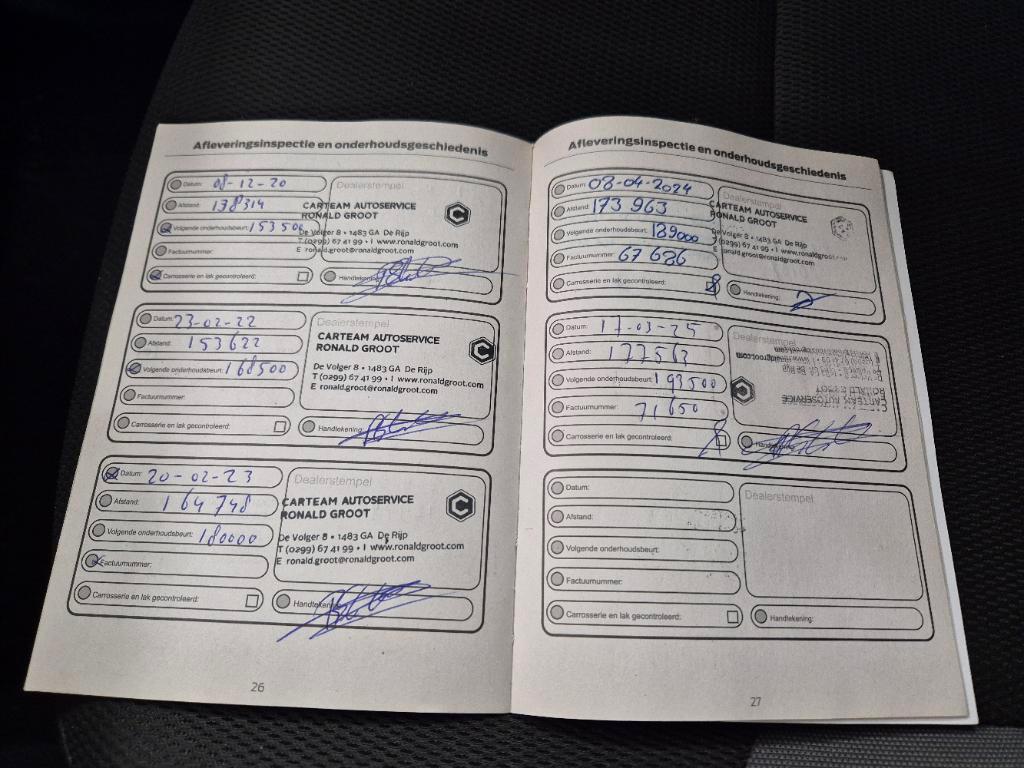 Afleveringsinspectie en onderhoudsgeschiedenis
Datum: 08-12-20
Afstand: 138314
Volgende onderhoudsbeurt: 153500
Factuurnummer:
Carrosserie en lak gecontroleerd:
Dealerstempel
CARTEAM AUTOSERVICE
RONALD GROOT
De Volger 8 • 1483 GA De Rijp
T (0299) 67 41 99 • I www.ronaldgroot.com
E ronald.groot@ronaldgroot.com
Handtekening:
Datum: 23-02-22
Afstand: 153622
Volgende onderhoudsbeurt: 168500
Factuurnummer:
Carrosserie en lak gecontroleerd:
Dealerstempel
CARTEAM AUTOSERVICE
RONALD GROOT
De Volger 8 • 1483 GA De Rijp
T (0299) 67 41 99 • I www.ronaldgroot.com
E ronald.groot@ronaldgroot.com
Handtekening:
Datum: 20-02-23
Afstand: 164748
Volgende onderhoudsbeurt: 180000
Factuurnummer:
Carrosserie en lak gecontroleerd:
Dealerstempel
CARTEAM AUTOSERVICE
RONALD GROOT
De Volger 8 • 1483 GA De Rijp
T (0299) 67 41 99 • I www.ronaldgroot.com
E ronald.groot@ronaldgroot.com
Handtekening:
26
Afleveringsinspectie en onderhoudsgeschiedenis
Datum: 08-04-2024
Afstand: 173963
Volgende onderhoudsbeurt: 189000
Factuurnummer: 67686
Carrosserie en lak gecontroleerd:
Dealerstempel
CARTEAM AUTOSERVICE
RONALD GROOT
De Volger 8 • 1483 GA De Rijp
T (0299) 67 41 99 • I www.ronaldgroot.com
E ronald.groot@ronaldgroot.com
Handtekening:
Datum: 17-03-25
Afstand: 177563
Volgende onderhoudsbeurt: 193500
Factuurnummer: 71650
Carrosserie en lak gecontroleerd:
Dealerstempel
CARTEAM AUTOSERVICE
RONALD GROOT
Handtekening:
Datum:
Afstand:
Volgende onderhoudsbeurt:
Factuurnummer:
Carrosserie en lak gecontroleerd:
Dealerstempel
Handtekening:
27